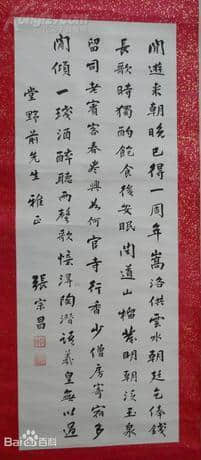 閒遊來朝晚已得一周年嵩洛供雲水朝廷乞俸錢
長歌時獨酌飽食後安眠聞道山榴明朝玉泉
留司老賓客春盡興如何官寺行香少僧房寄宿多
閒傾一琖酒醉聽兩聲歌憶得陶潛語羲皇無以過
堂野前先生雅正
張宗昌
Bai百科